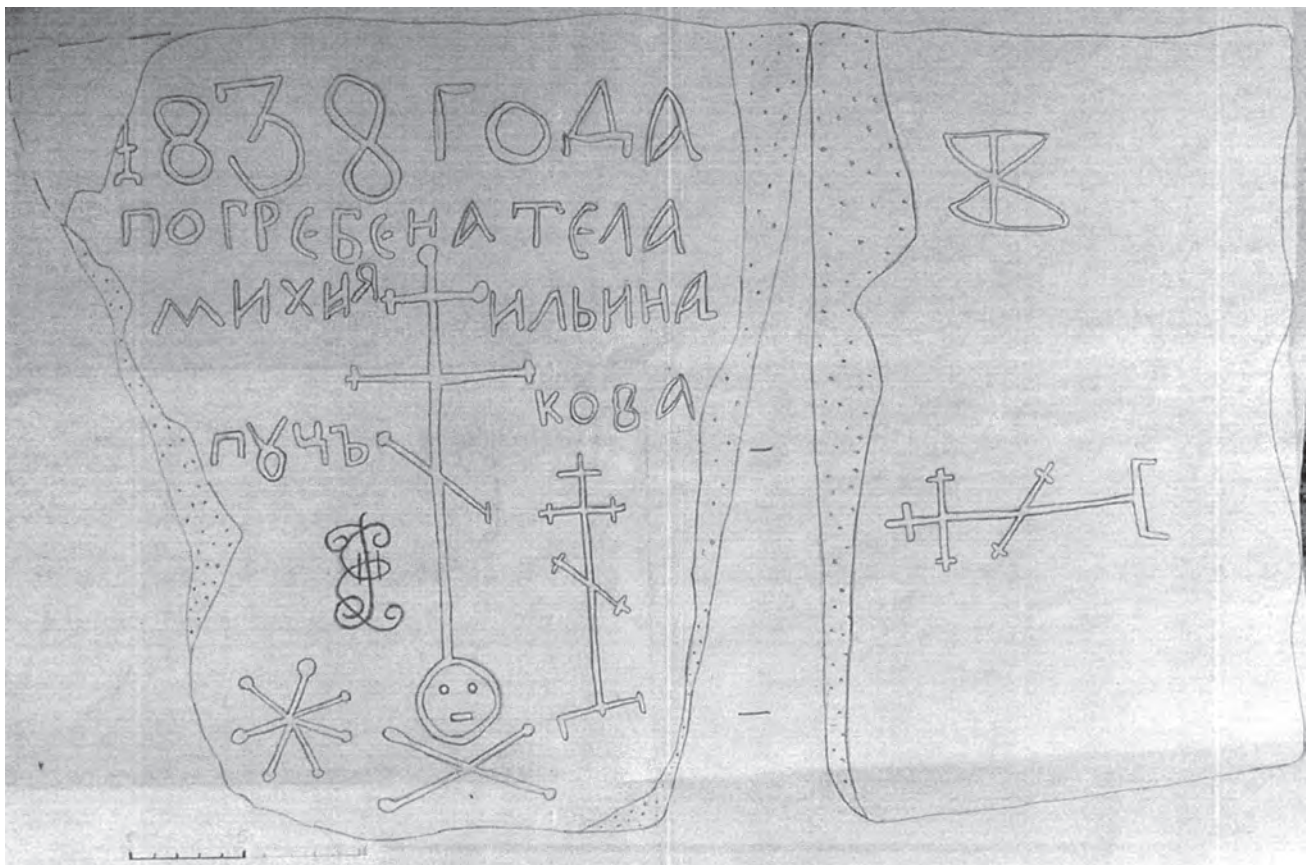 1838 ГОДА
ПОГРЕБЕНА ТЕЛА
МИХИЯ ИЛЬИНА
КОВА
ПꙊЧЪ